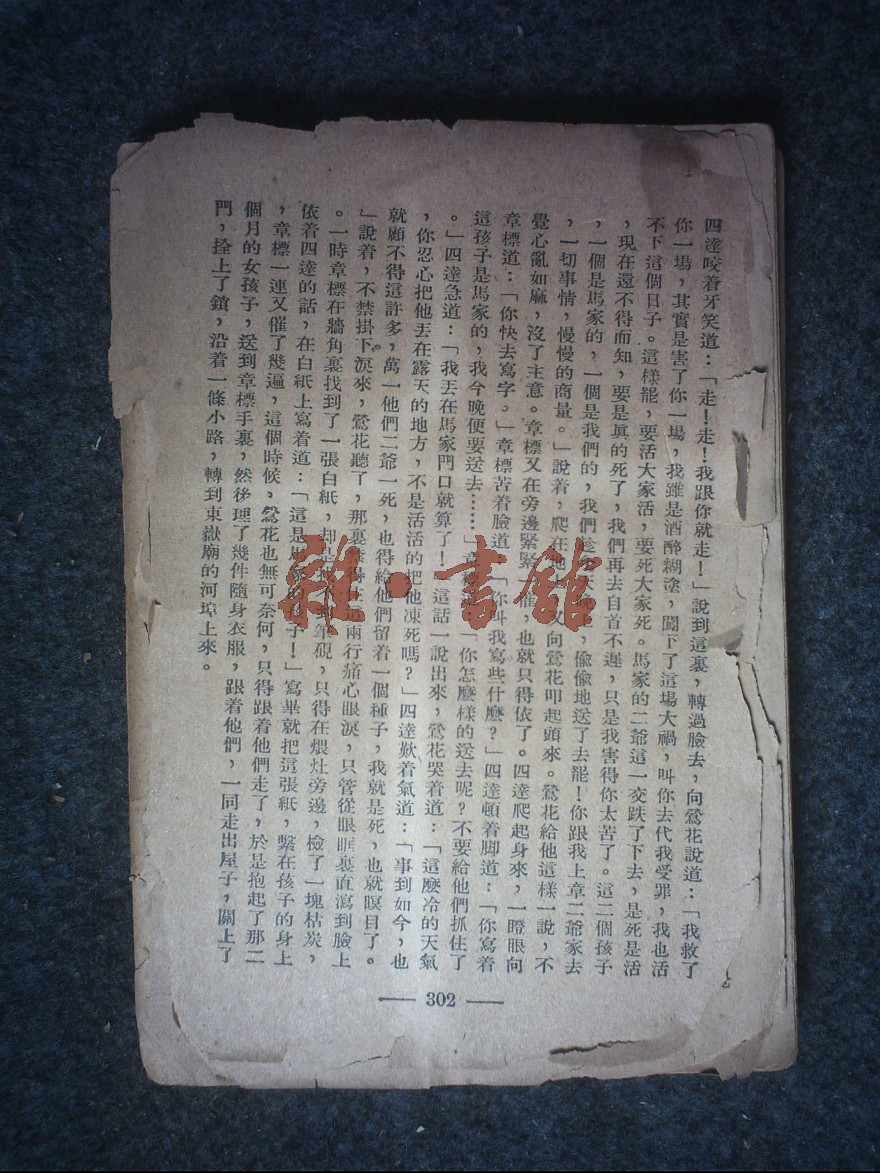 四達咬着牙笑道：「走！走！我跟你就走！」說到這裏，轉過臉去，向鶯花說道：「我救了
你一場，其實是害了你一場，我雖是酒醉糊塗，闖下了這場大禍，叫你去代我受罪，我也活
不下這個日子。這樣罷，要活大家活，要死大家死。馬家的二爺這一交跌了下去，是死是活
，現在還不得而知，要是眞的死了，我們再去自首不遲，只是我害得你太苦了。這二個孩子
，一個是馬家的，一個是我們的，我們趁，偷偷地送了去罷！你跟我上章二爺家去
，一切事情，慢慢的商量。」說着，爬在地，又向鶯花叩起頭來。鶯花給他這樣一說，不
覺心亂如麻，沒了主意。章標又在旁邊緊緊催，也就只得依了。四達爬起身來，一瞪眼向
章標道：「你快去寫字。」章標苦着臉道：「你叫我寫些什麼？」四達頓着脚道：「你寫着
這孩子是馬家的，我今晚便要送去……」章：「你怎麼樣的送去呢？不要給他們抓住了
。」四達急道：「我丟在馬家門口就算了！」這話一說出來，鶯花哭着道：「這麼冷的天氣
，你忍心把他丟在露天的地方，不是活活的把他凍死嗎？」四達歎着氣道：「事到如今，也
就顧不得這許多，萬一他們二爺一死，也得給他們留着一個種子，我就是死，也就瞑目了。
」說着，不禁掛下淚來，鶯花聽了，那裏禁得住這兩行痛心眼淚，只管從眼眶裏直瀉到臉上
。一時章標在牆角裏找到了一張白紙，却是找不到筆硯，只得在煨灶旁邊，檢了一塊枯炭，
依着四達的話，在白紙上寫着道：「這是馬家的孩子！」寫畢就把這張紙，繫在孩子的身上
，章標一連又催了幾遍，這個時候，鶯花也無可奈何，只得跟着他們走了，於是抱起了那二
個月的女孩子，送到章標手裏，然後理了幾件隨身衣服，跟着他們，一同走出屋子，關上了
門，拴上了鎖，沿着一條小路，轉到東嶽廟的河埠上來。
— 302 —
雜·書館